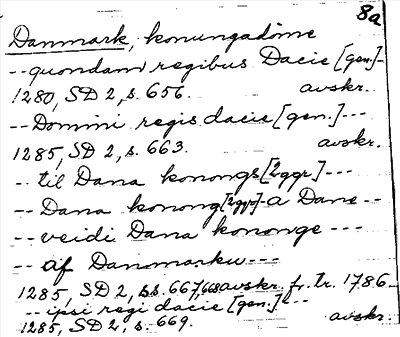 8a
Danmark, konungadöme
-- quondam regibus Dacie [gen.]-
1280, SD 2, s. 656. avskr.
-- Domini regis dacie [gen.]---
1285, SD 2, s. 663. avskr.
-- til Dana konongs [2ggr.]---
-- Dana konong [2ggr]- a Dane --
-- veidi Dana kononge ---
-- af Danmarku ---
1285, SD 2, ss. 667,668 avskr. fr. tr. 1786 -
-- ipsi regi dacie [gen.] ---
1285, SD 2, s. 669. avskr.